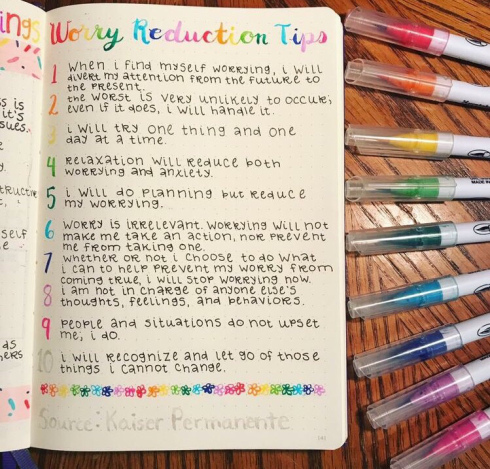 ings
Worry Reduction Tips
1 When i find myself worrying, i will
divert my attention from the future to
the present.
2 the worst is very unlikely to occur;
even if it does, i will handle it.
3 i will try one thing and one
day at a time.
4 relaxation will reduce both
worrying and anxiety.
5 i will do planning but reduce
my worrying.
6 worry is irrelevant. worrying will not
make me take an action, nor prevent
me from taking one.
7 whether or not i choose to do what
i can to help prevent my worry from
coming true, i will stop worrying now.
8 i am not in charge of anyone else's
thoughts, feelings, and behaviors.
9 people and situations do not upset
me; i do.
10 i will recognize and let go of those
things i cannot change.
Source: Kaiser Permanente
ss is
it's
sues.
self